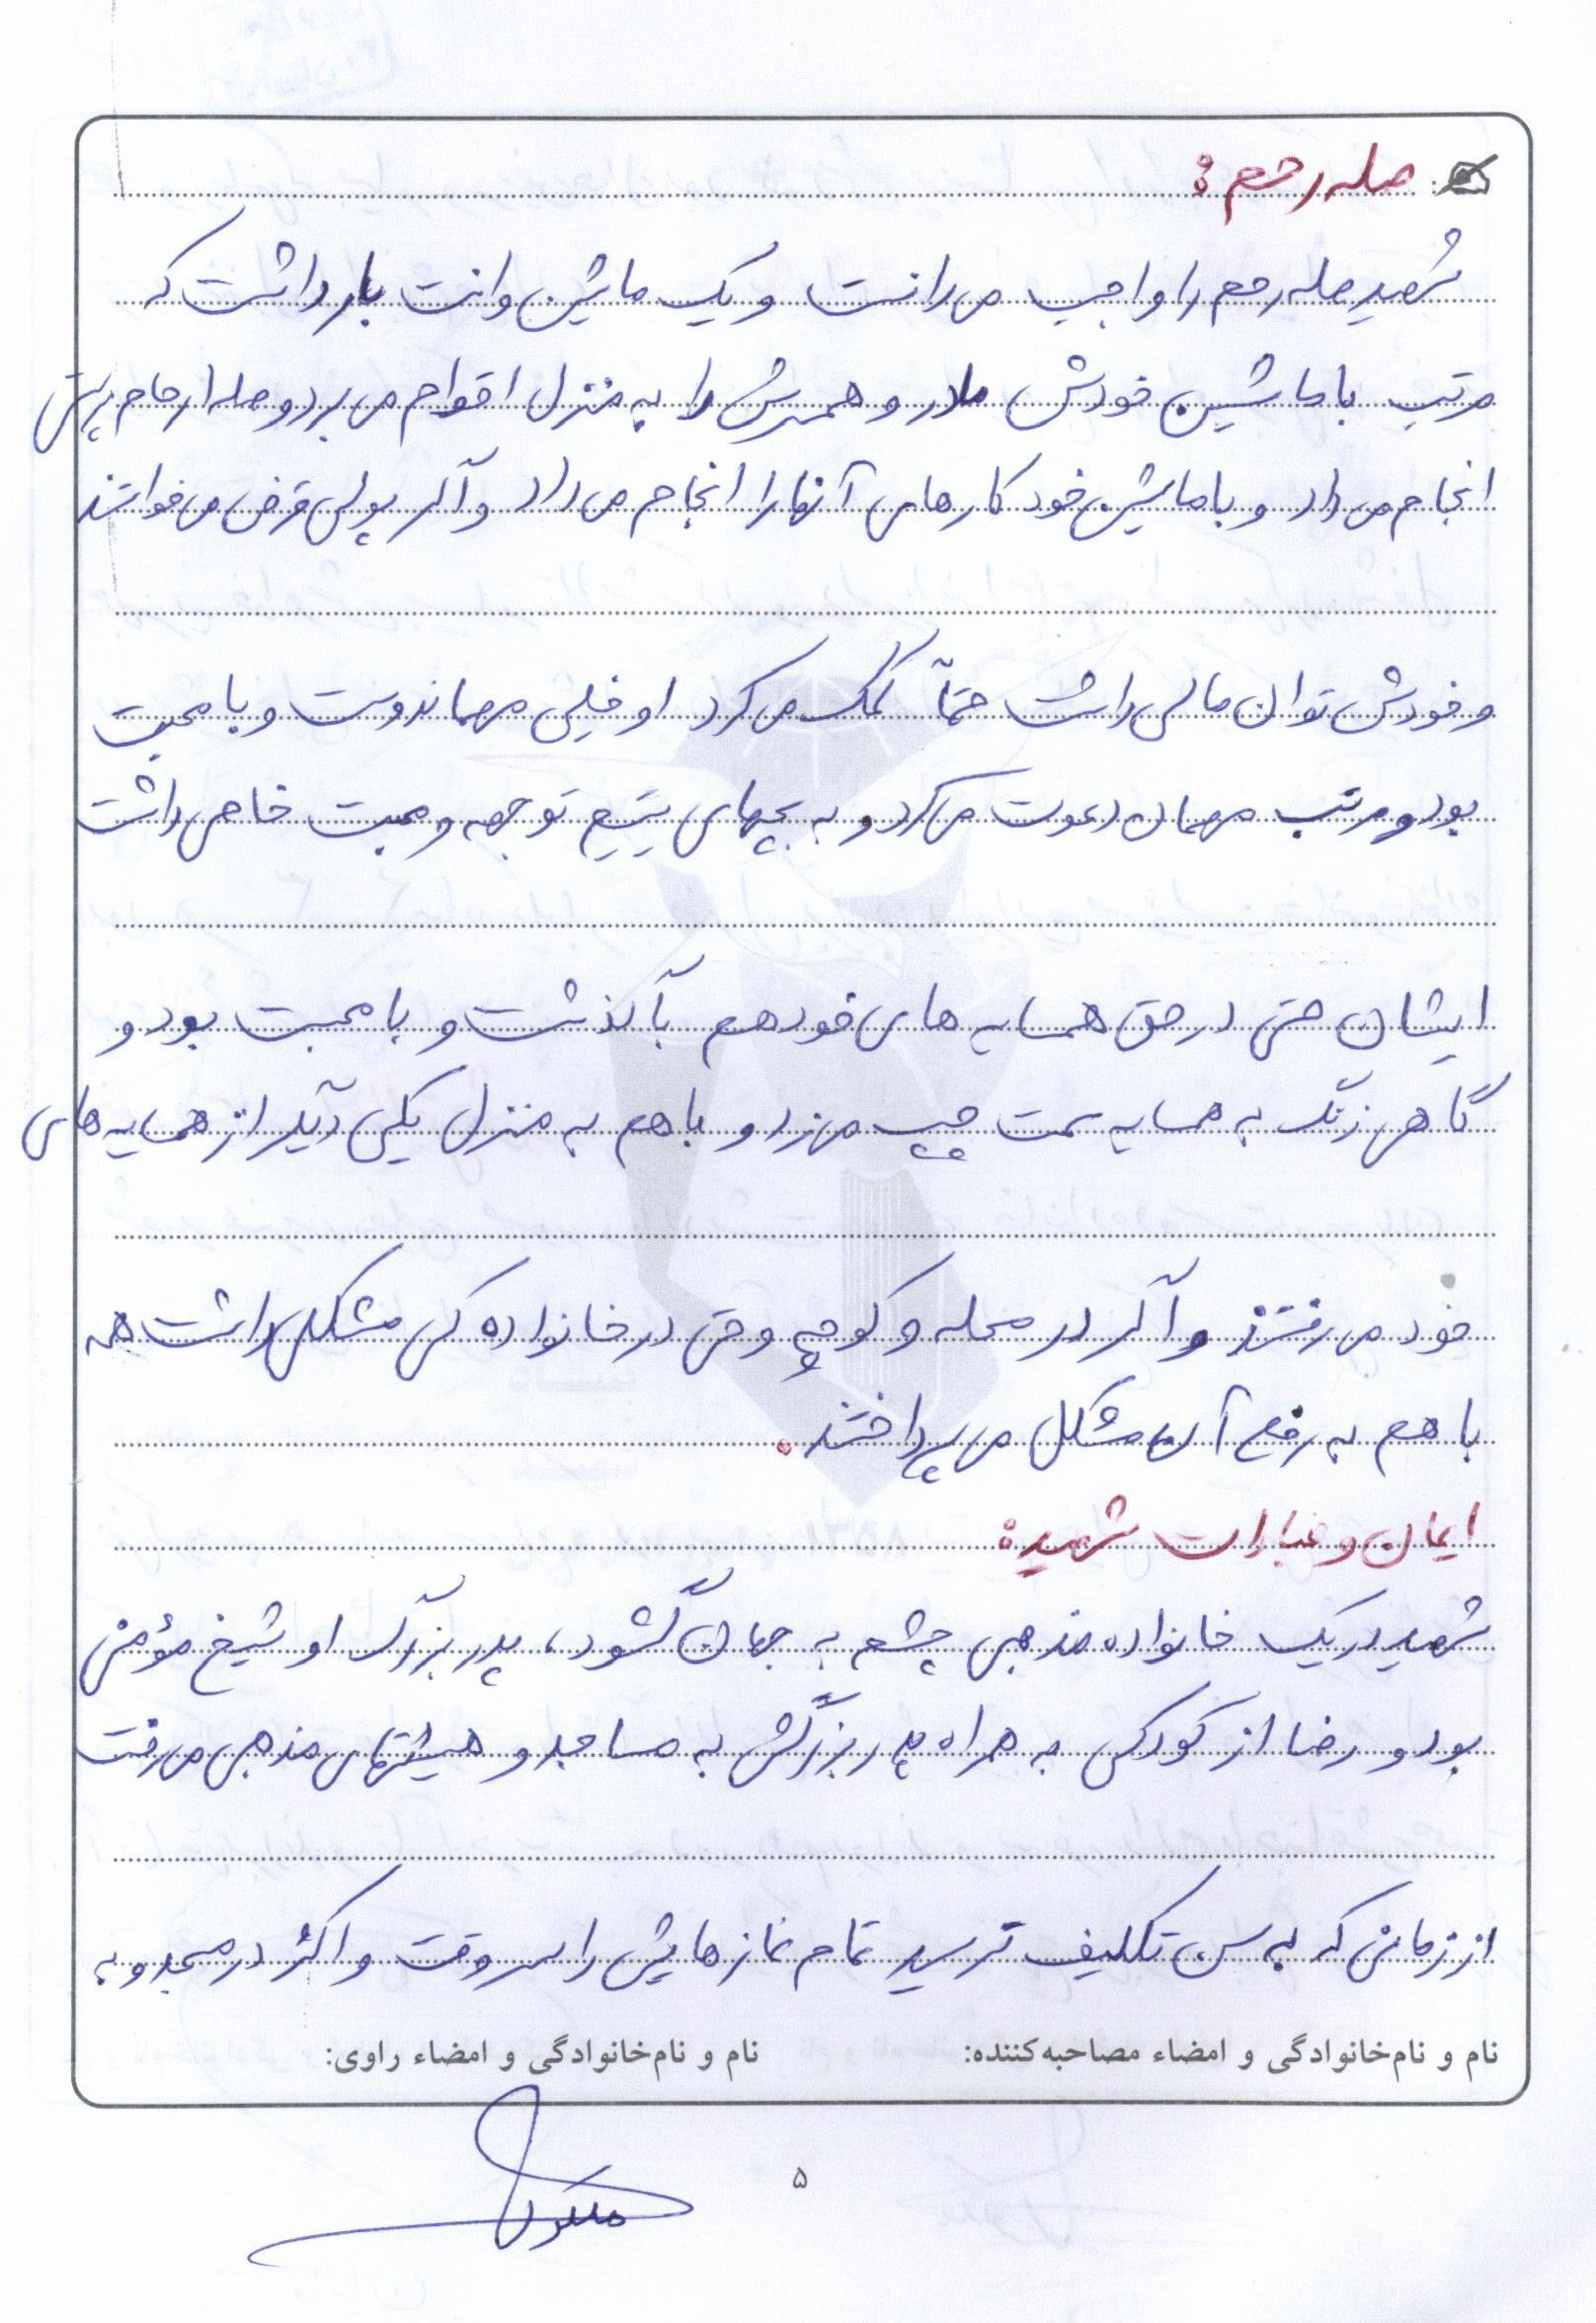 صله رحم :
شهید صله رحم را واجب می دانست و یک ماشین وانت بار داشت که
مرتب با ماشین خودش مادر و همسرش را به منزل اقوام می برد و صله ارحام برایش
انجام می داد و با ماشین خود کارهای آنها را انجام می داد و اگر پولی قرض می خواستند
و خودش توان مالی داشت حتماً کمک می کرد او خیلی مهماندوست و با محبت
بود و مرتب مهمان دعوت می کرد و به بچهای یتیم توجهه و محبت خاصی داشت
ایشان حتی در حق همسایه های خود هم با گذشت و با محبت بود و
گاهی زنگ به همسایه سمت چپ می زد و با هم به منزل یکی دیگر از همسایه های
خود می رفتند و اگر در محله و کوچه و حتی در خانواده کسی مشکلی داشت همه
با هم به رفع آن مشکل می پرداختند.
ایمان و عبادات شهید:
شهید در یک خانواده مذهبی چشم به جهان گشود، پدر بزرگ او شیخ مؤمنی
بود و رضا از کودکی به همراه پدر بزرگش به مساجد و هیئتهای مذهبی می رفت
از زمانی که به سن تکلیف رسید تمام نمازهایش را سر وقت و اکثر در مسجد و به
نام و نام‌خانوادگی و امضاء مصاحبه‌کننده: نام و نام‌خانوادگی و امضاء راوی:
۵